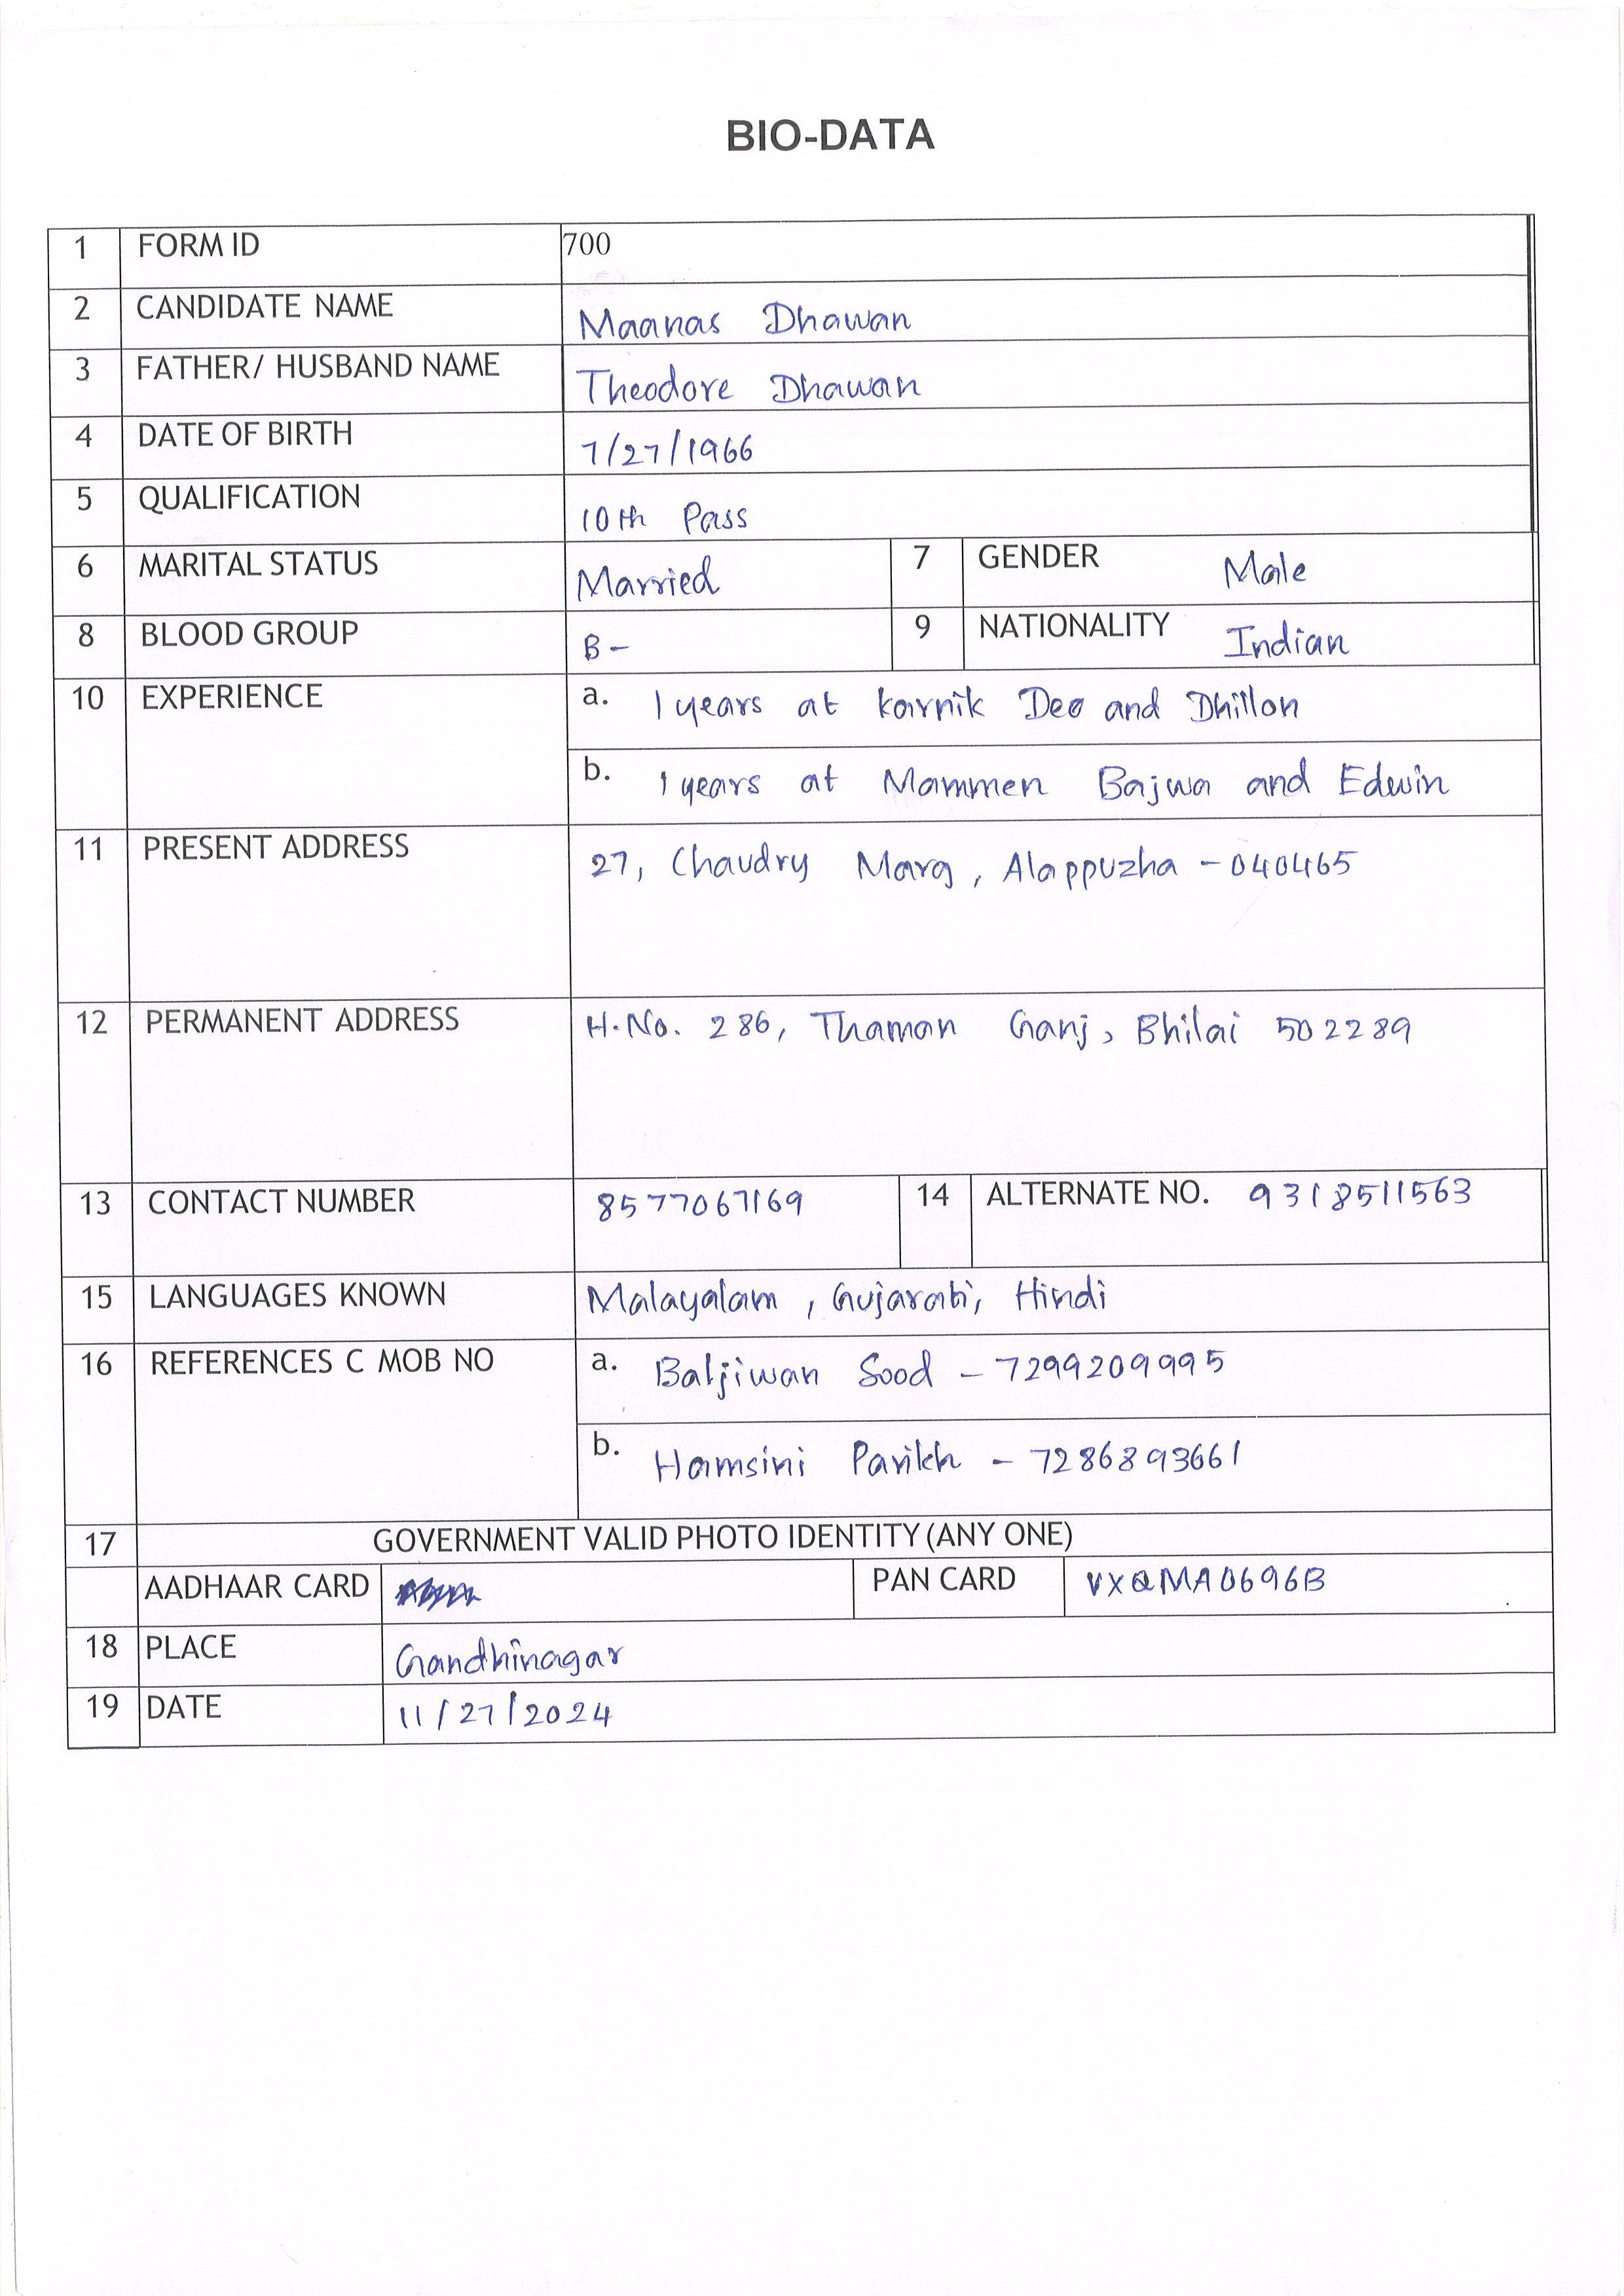 BIO-DATA
1 FORM ID 700
2 CANDIDATE NAME Maanas Dhawan
3 FATHER/ HUSBAND NAME Theodore Dhawan
4 DATE OF BIRTH 7/27/1966
5 QUALIFICATION 10th Pass
6 MARITAL STATUS Married 7 GENDER Male
8 BLOOD GROUP B- 9 NATIONALITY Indian
10 EXPERIENCE a. 1 years at Karnik Deo and Dhillon
b. 1 years at Mammen Bajwa and Edwin
11 PRESENT ADDRESS 27, Chaudry Marg, Alappuzha - 040465
12 PERMANENT ADDRESS H.No. 286, Thaman Ganj, Bhilai 502289
13 CONTACT NUMBER 8577067169 14 ALTERNATE NO. 9318511563
15 LANGUAGES KNOWN Malayalam, Gujarati, Hindi
16 REFERENCES C MOB NO a. Baljiwan Sood - 7299209995
b. Hamsini Parikh - 7286893661
17 GOVERNMENT VALID PHOTO IDENTITY (ANY ONE)
AADHAAR CARD PAN CARD VXQMA0696B
18 PLACE Gandhinagar
19 DATE 11/27/2024